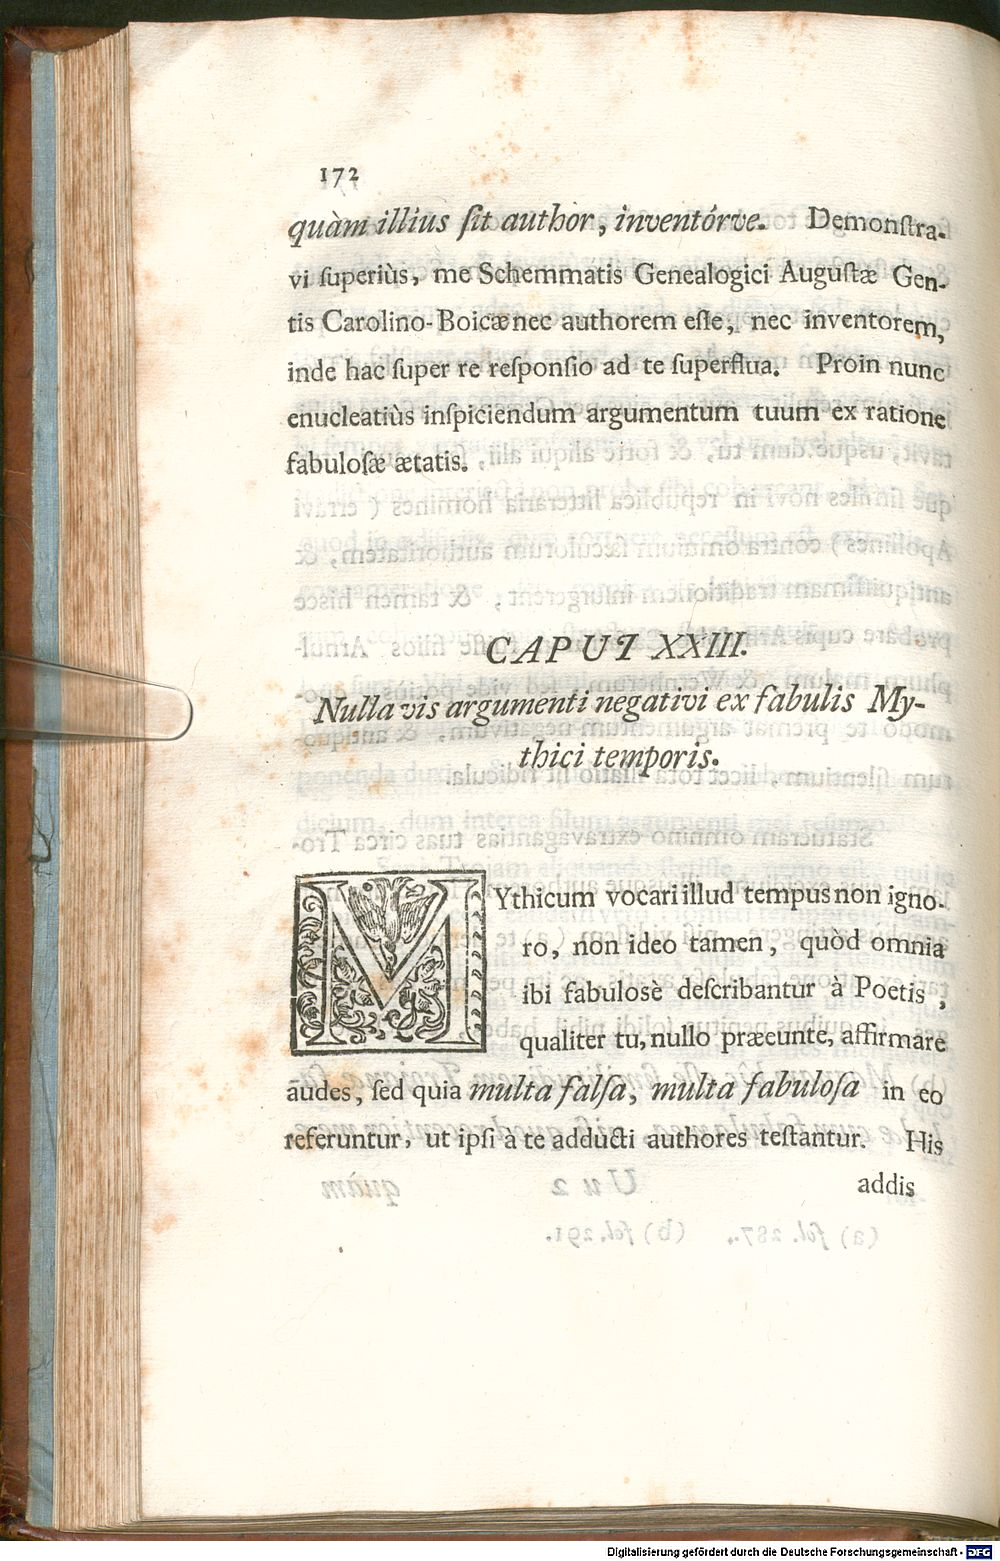 172
quàm illius ſit author, inventórve. Demonſtra-
vi ſuperiùs, me Schemmatis Genealogici Auguſtæ Gen-
tis Carolino-Boicæ nec authorem eſſe, nec inventorem,
inde hac ſuper re reſponſio ad te ſuperflua. Proin nunc
enucleatiùs inſpiciendum argumentum tuum ex ratione
fabuloſæ ætatis.
CAPUT XXIII.
Nulla vis argumenti negativi ex fabulis My-
thici temporis.
MYthicum vocari illud tempus non igno-
ro, non ideo tamen, quòd omnia
ibi fabulosè deſcribantur à Poetis,
qualiter tu, nullo præeunte, affirmare
audes, ſed quia multa falſa, multa fabuloſa in eo
referuntur, ut ipſi à te adducti authores teſtantur. His
addis
Digitalisierung gefördert durch die Deutsche Forschungsgemeinschaft - DFG